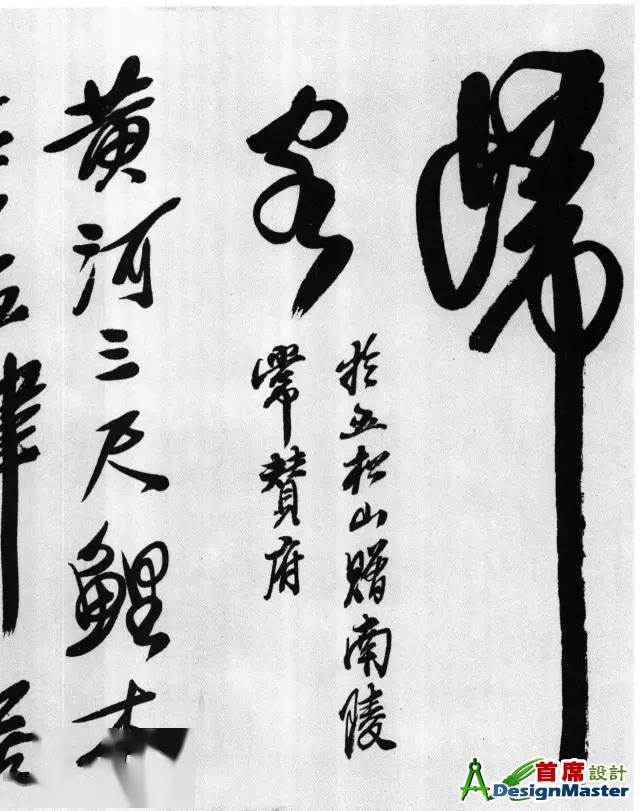 歸
客
於五松山贈南陵
常贊府
黃河三尺鯉本
津居
首席設計
ADesignMaster